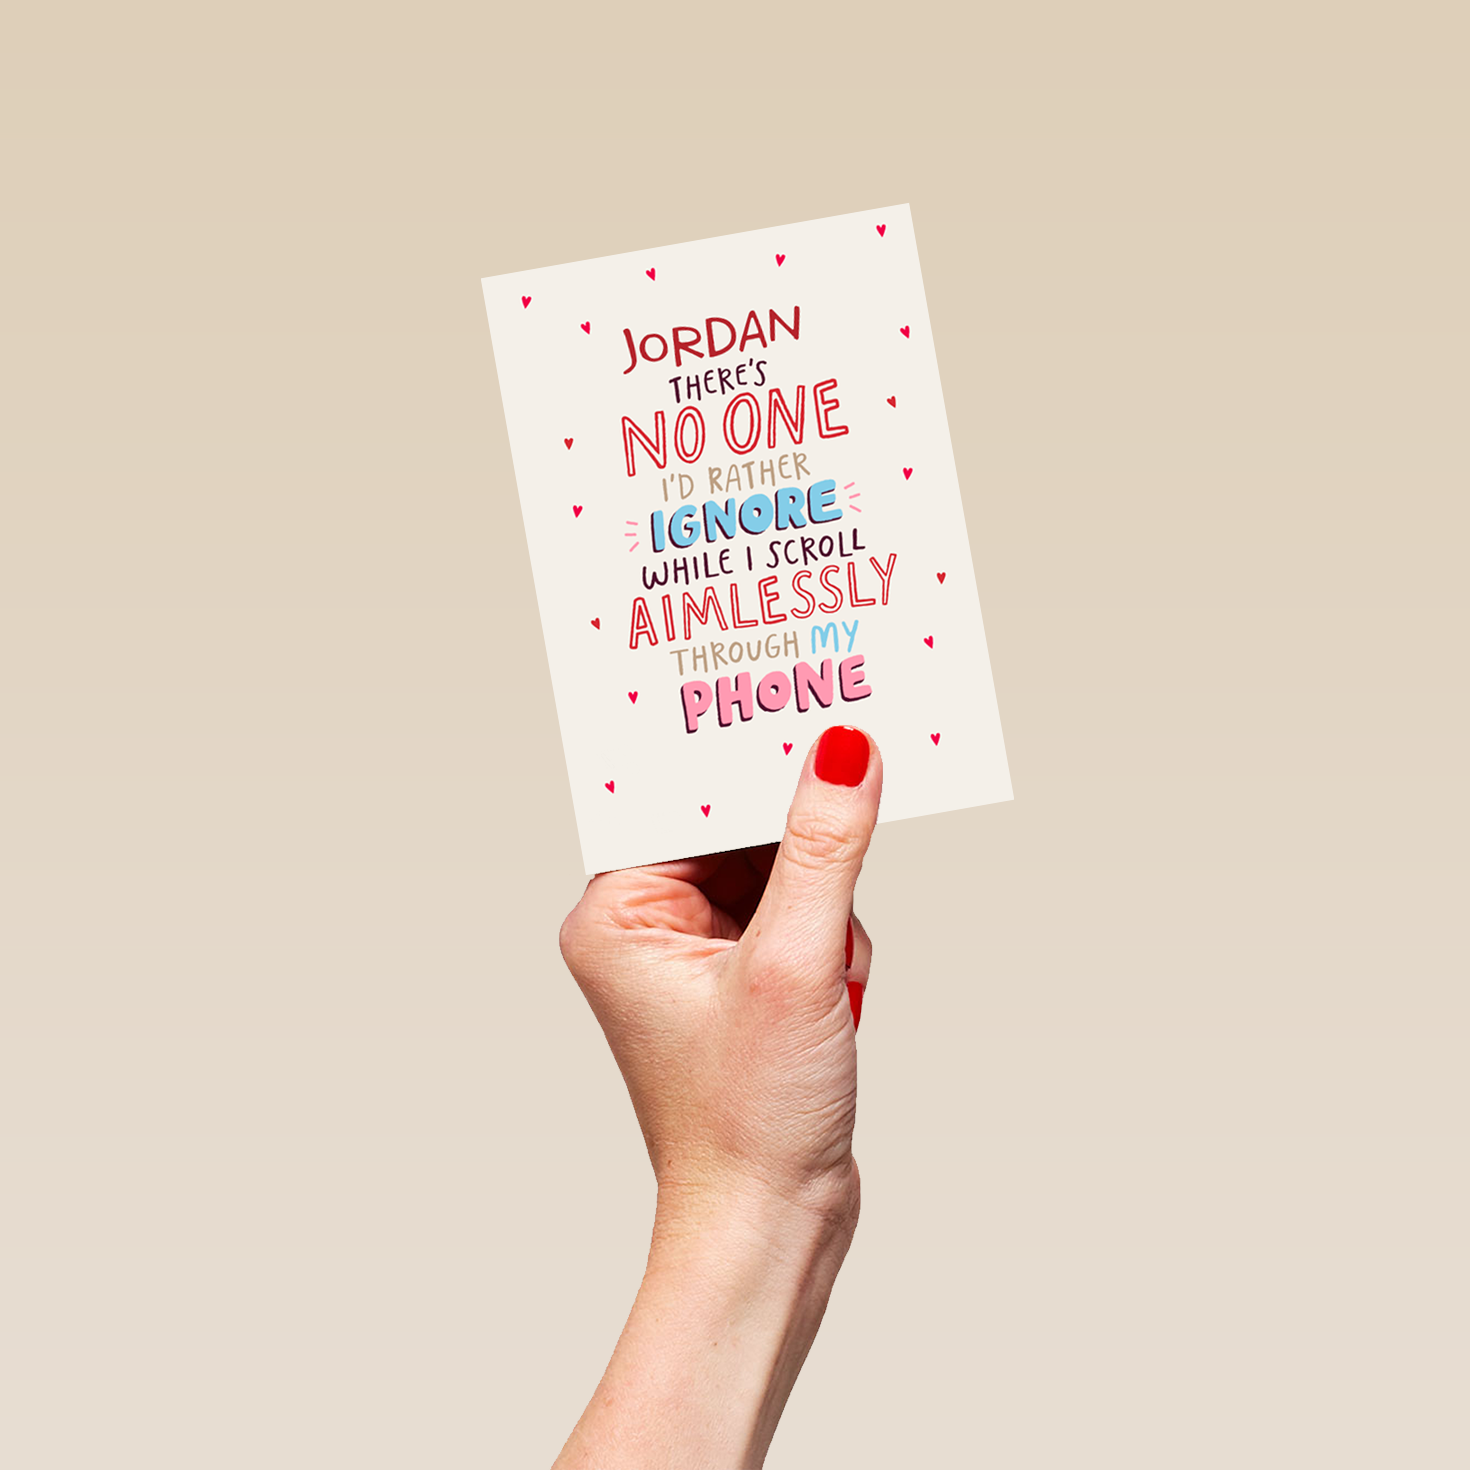 JORDAN
THERE'S
NO ONE
I'D RATHER
IGNORE
WHILE I SCROLL
AIMLESSLY
THROUGH MY
PHONE